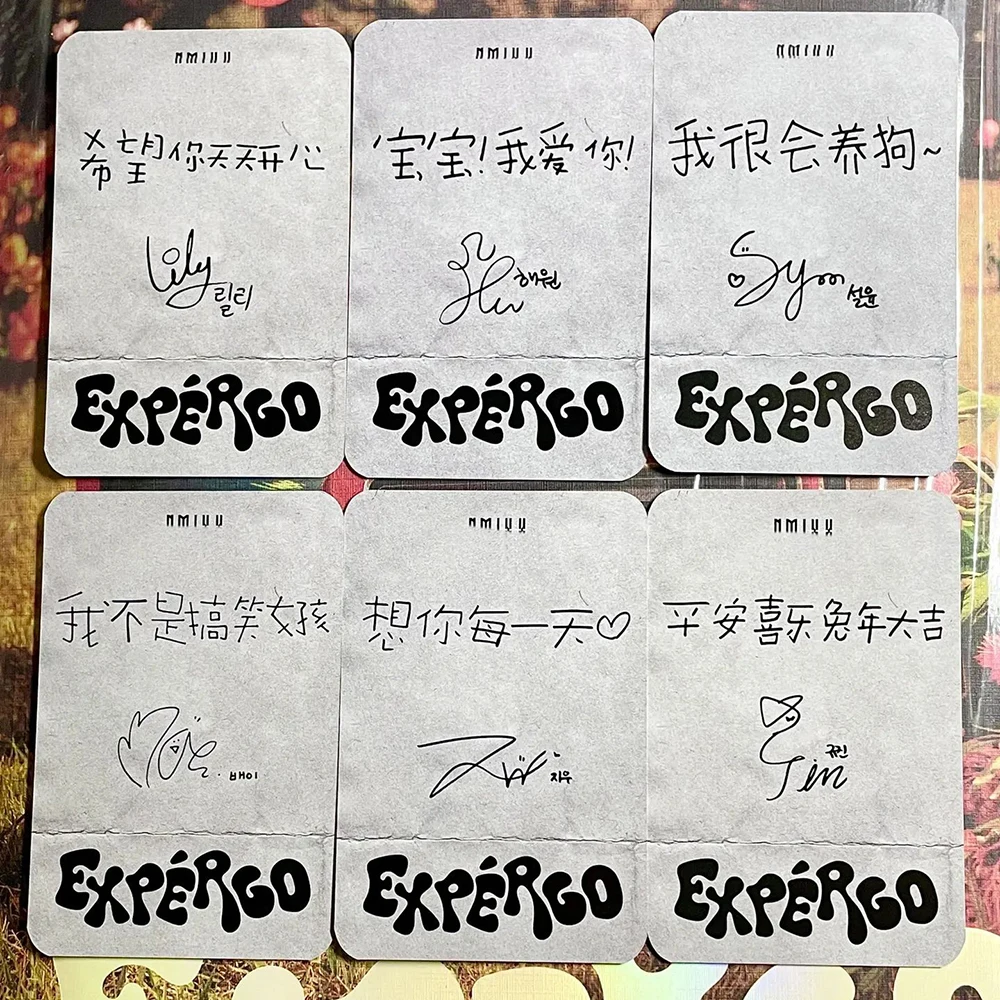 NMIXX
希望你天天开心
Lily 릴리
EXPÉRGO
NMIXX
宝宝!我爱你!
해원
EXPÉRGO
NMIXX
我很会养狗~
Sym 설윤
EXPÉRGO
NMIXX
我不是搞笑女孩
배이
EXPÉRGO
NMIXX
想你每一天♡
지우
EXPÉRGO
NMIXX
平安喜乐兔年大吉
Jin 규진
EXPÉRGO